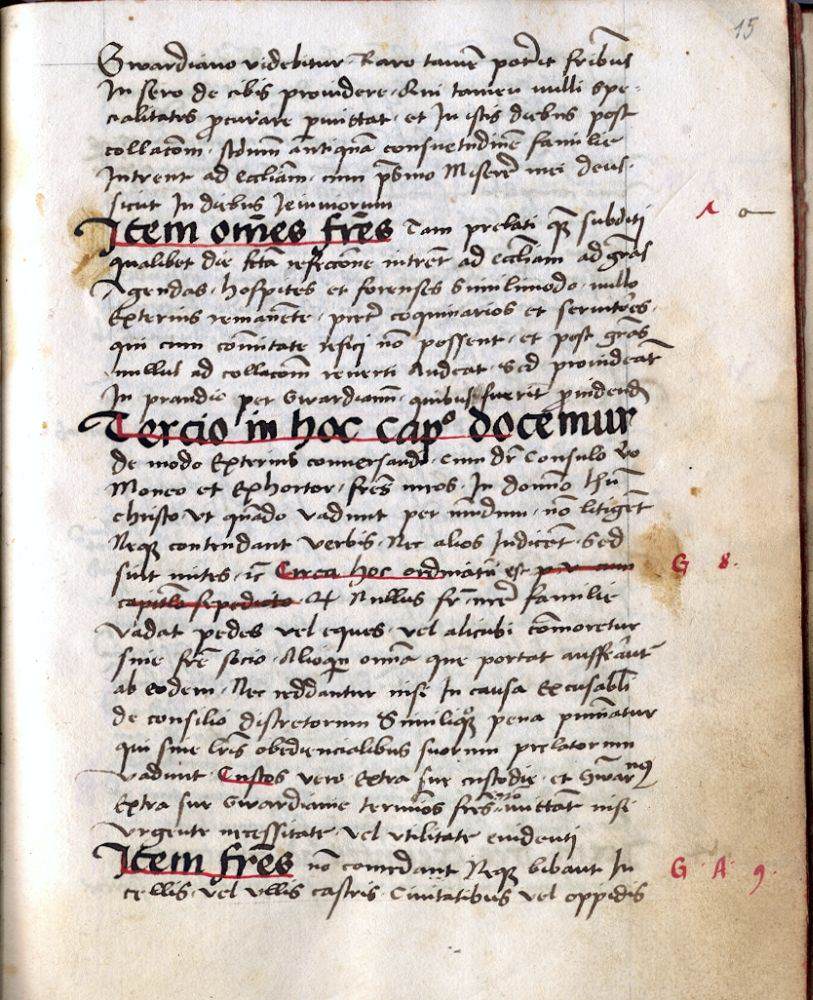 15
Gwardiano videbitur Raro tamē poterit fribus
In sero de cibis prouidere. Qui tamen nulli spe-
cialitates pcurare pmittat. et In istis diebus post
collacōm. scdum antiquā consuetudinē familie
Intrent ad eccliam. cum psmo Miserere mei deus.
sicut In diebus Ieiuniorum
Item om̄es fr̄es Tam prelati qȝ subditi
qualibet die fctā refeccione intrēt ad eccliam ad grās
Agendas. hospites et forenses Similimodo. nullo
Exterius remanēte. preter coquinarios et seruitores.
qui cum cōmitate refici nō possent. et post grās
nullus ad collacōm reuerti Audeat. Sed prouideat
In prandio per Gwardianū. quibus fuerit puidend
Tercio in hoc cap° docemur
de modo Exterius conuersandi. Cum dr̄ Consulo v̄o
Moneo et Exhortor. frēs meos. In domino Ihū
christo vt quādo vadunt per mūdum. nō litigēt
Neqȝ contendant verbis. Nec alios Iudicēt. Sed
sint mites. ic̄ Circa hoc ordinatū est p v cum
capitulo sepedicto. Nullus fr̄ nre familie
vadat pedes vel eques. vel alicubi cōmoretur
sine fre socio. Alioqn omnia que portat auffer̄ātr
ab eodem. Nec reddantur nisi In causa Excusabli
de consilio discretorum Similiqȝ pena puniatur
qui sine lr̄is obediencialibus suorum prelatorum
vadunt. Custos vero Extra sue custodie. et Gwarnȝ
Extra sue Gwardianie terminos frēs nō mittāt nisi
vrgente necessitate. vel vtilitate euidenti
Item fr̄es nō comedant Neqȝ bibant In
cellis. vel vllis castris. Ciuitatibus vel oppidis
1 a
G 8.
G. A. 9.